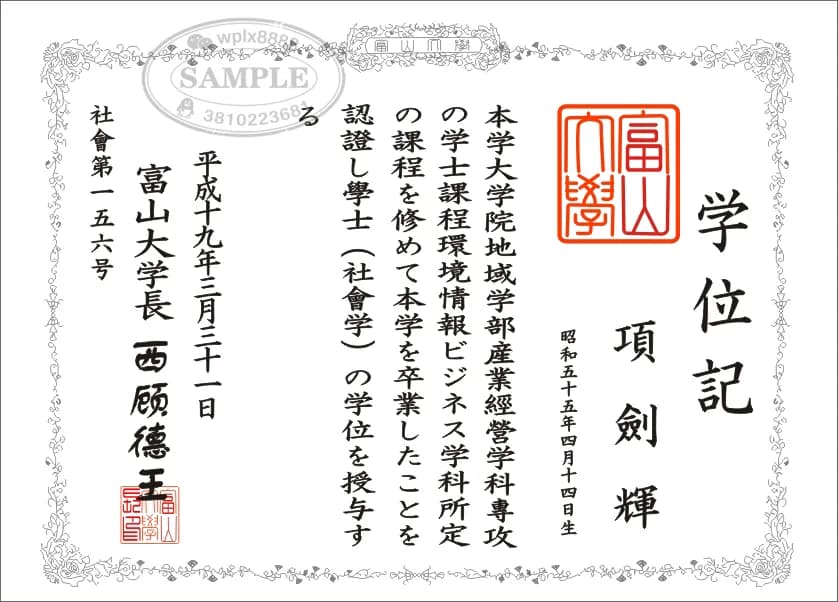 富山大學
wplx8888
SAMPLE
3810223681
学位記
富山大學
項劍輝
昭和五十五年四月十四日生
本学大学院地域学部産業經營学科專攻
の学士課程環境情報ビジネス学科所定
の課程を修めて本学を卒業したことを
認證し學士（社會学）の学位を授与す
る
平成十九年三月三十一日
富山大学長 西顾德王
社會第一五六号